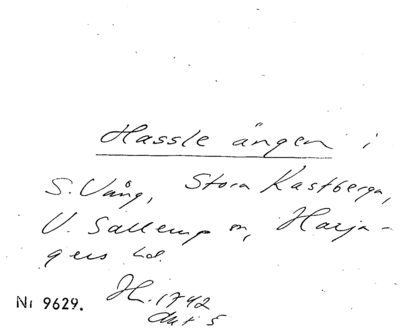 Hassle ängen i
S. Vång, Stora Kastberga,
V. Sallerup sn, Harja-
gers hd.
Nr 9629. Hr. 1742
akt 5